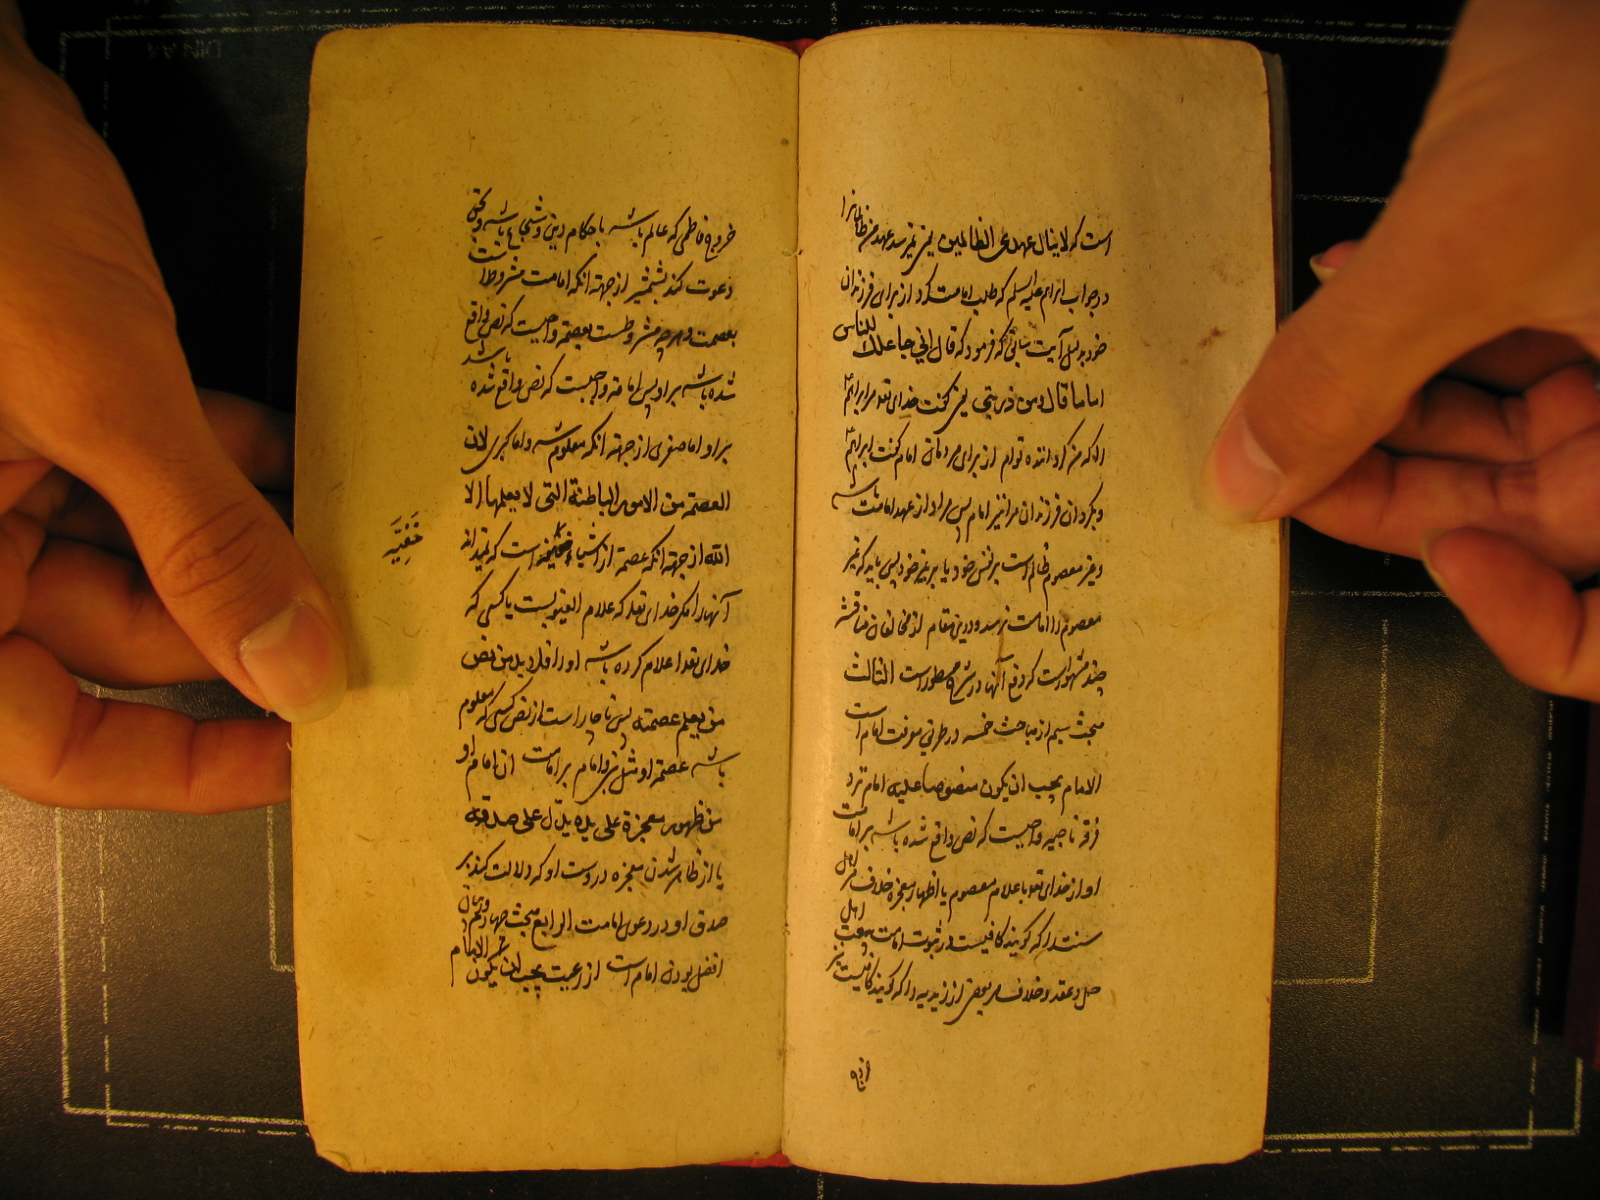 است که لا ینال عهدی الظالمین یعنی نمیرسد عهد من ظالمانرا
در جواب ابراهیم علیه السلم که طلب امامت کرد از برای فرزندان
خود بدلیل آیت که فرمود که قال انی جاعلک للناس
اماما قال ومن ذریتی یعنی گفت خدای تعد مر ابراهیم
که من گرداننده توام از برای مردمان امام گفت ابراهیم
و بگردان فرزندان مرا نیز امام پس مراد از عهد امامت باشد
و غیر معصوم ظالم است بر نفس خود یا بر غیر خود پس باید که غیر
معصوم را امامت نرسد و درین مقام از مخالفان مناقشه
چند مشهور است که دفع آنها در شرح مسطور است الثالث
مبحث سیم از مباحث خمسه در طریق معرفت امام است
الامام یجب ان یکون منصوصا علیه امام نزد
فرقه ناجیه واجبست که نص واقع شده باشد بر امامت
او از خدای تعد باعلام معصوم یا اظهار معجزه خلاف مر اهل
سنت را که گویند کافیست در ثبوت امامت بیعت اهل
حل و عقد و خلاف مر بعضی از زیدیه را که گویند کافیست نیز
خروج
خروج فاطمی که عالم باشد باحکام دین و شجاع باشد و بحق
دعوت کند بشمشیر از جهته انکه امامت مشروط است
بعصمت و هرچه مشروطست بعصمة واجبست که نص واقع
شده باشد بر او پس امامة واجبست که نص واقع شده باشد
بر او اما صغری از جهته انکه معلوم شد و اما کبری لان
العصمة من الامور الباطنة التی لا یعلمها الا
الله از جهته انکه عصمة از اشیاء خفیه است که نمیداند
خَفْیَه
آنهارا مگر خدای تعد که علام الغیوبست یا کسی که
خدای تعد اعلام کرده باشد او را فلا بد من نص
من یعلم عصمته پس ناچار است از نص کسی که معلوم
باشد عصمة او مثل نبی و امام بر امامت ان امام او
من ظهور معجزة علی یده یدل علی صدقه
یا از ظاهر شدن معجزه در دست او که دلالت کند بر
صدق او در دعوی امامت الرابع مبحث چهارم در بیان
افضل بودن امام است از رعیت یجب ان یکون الامام